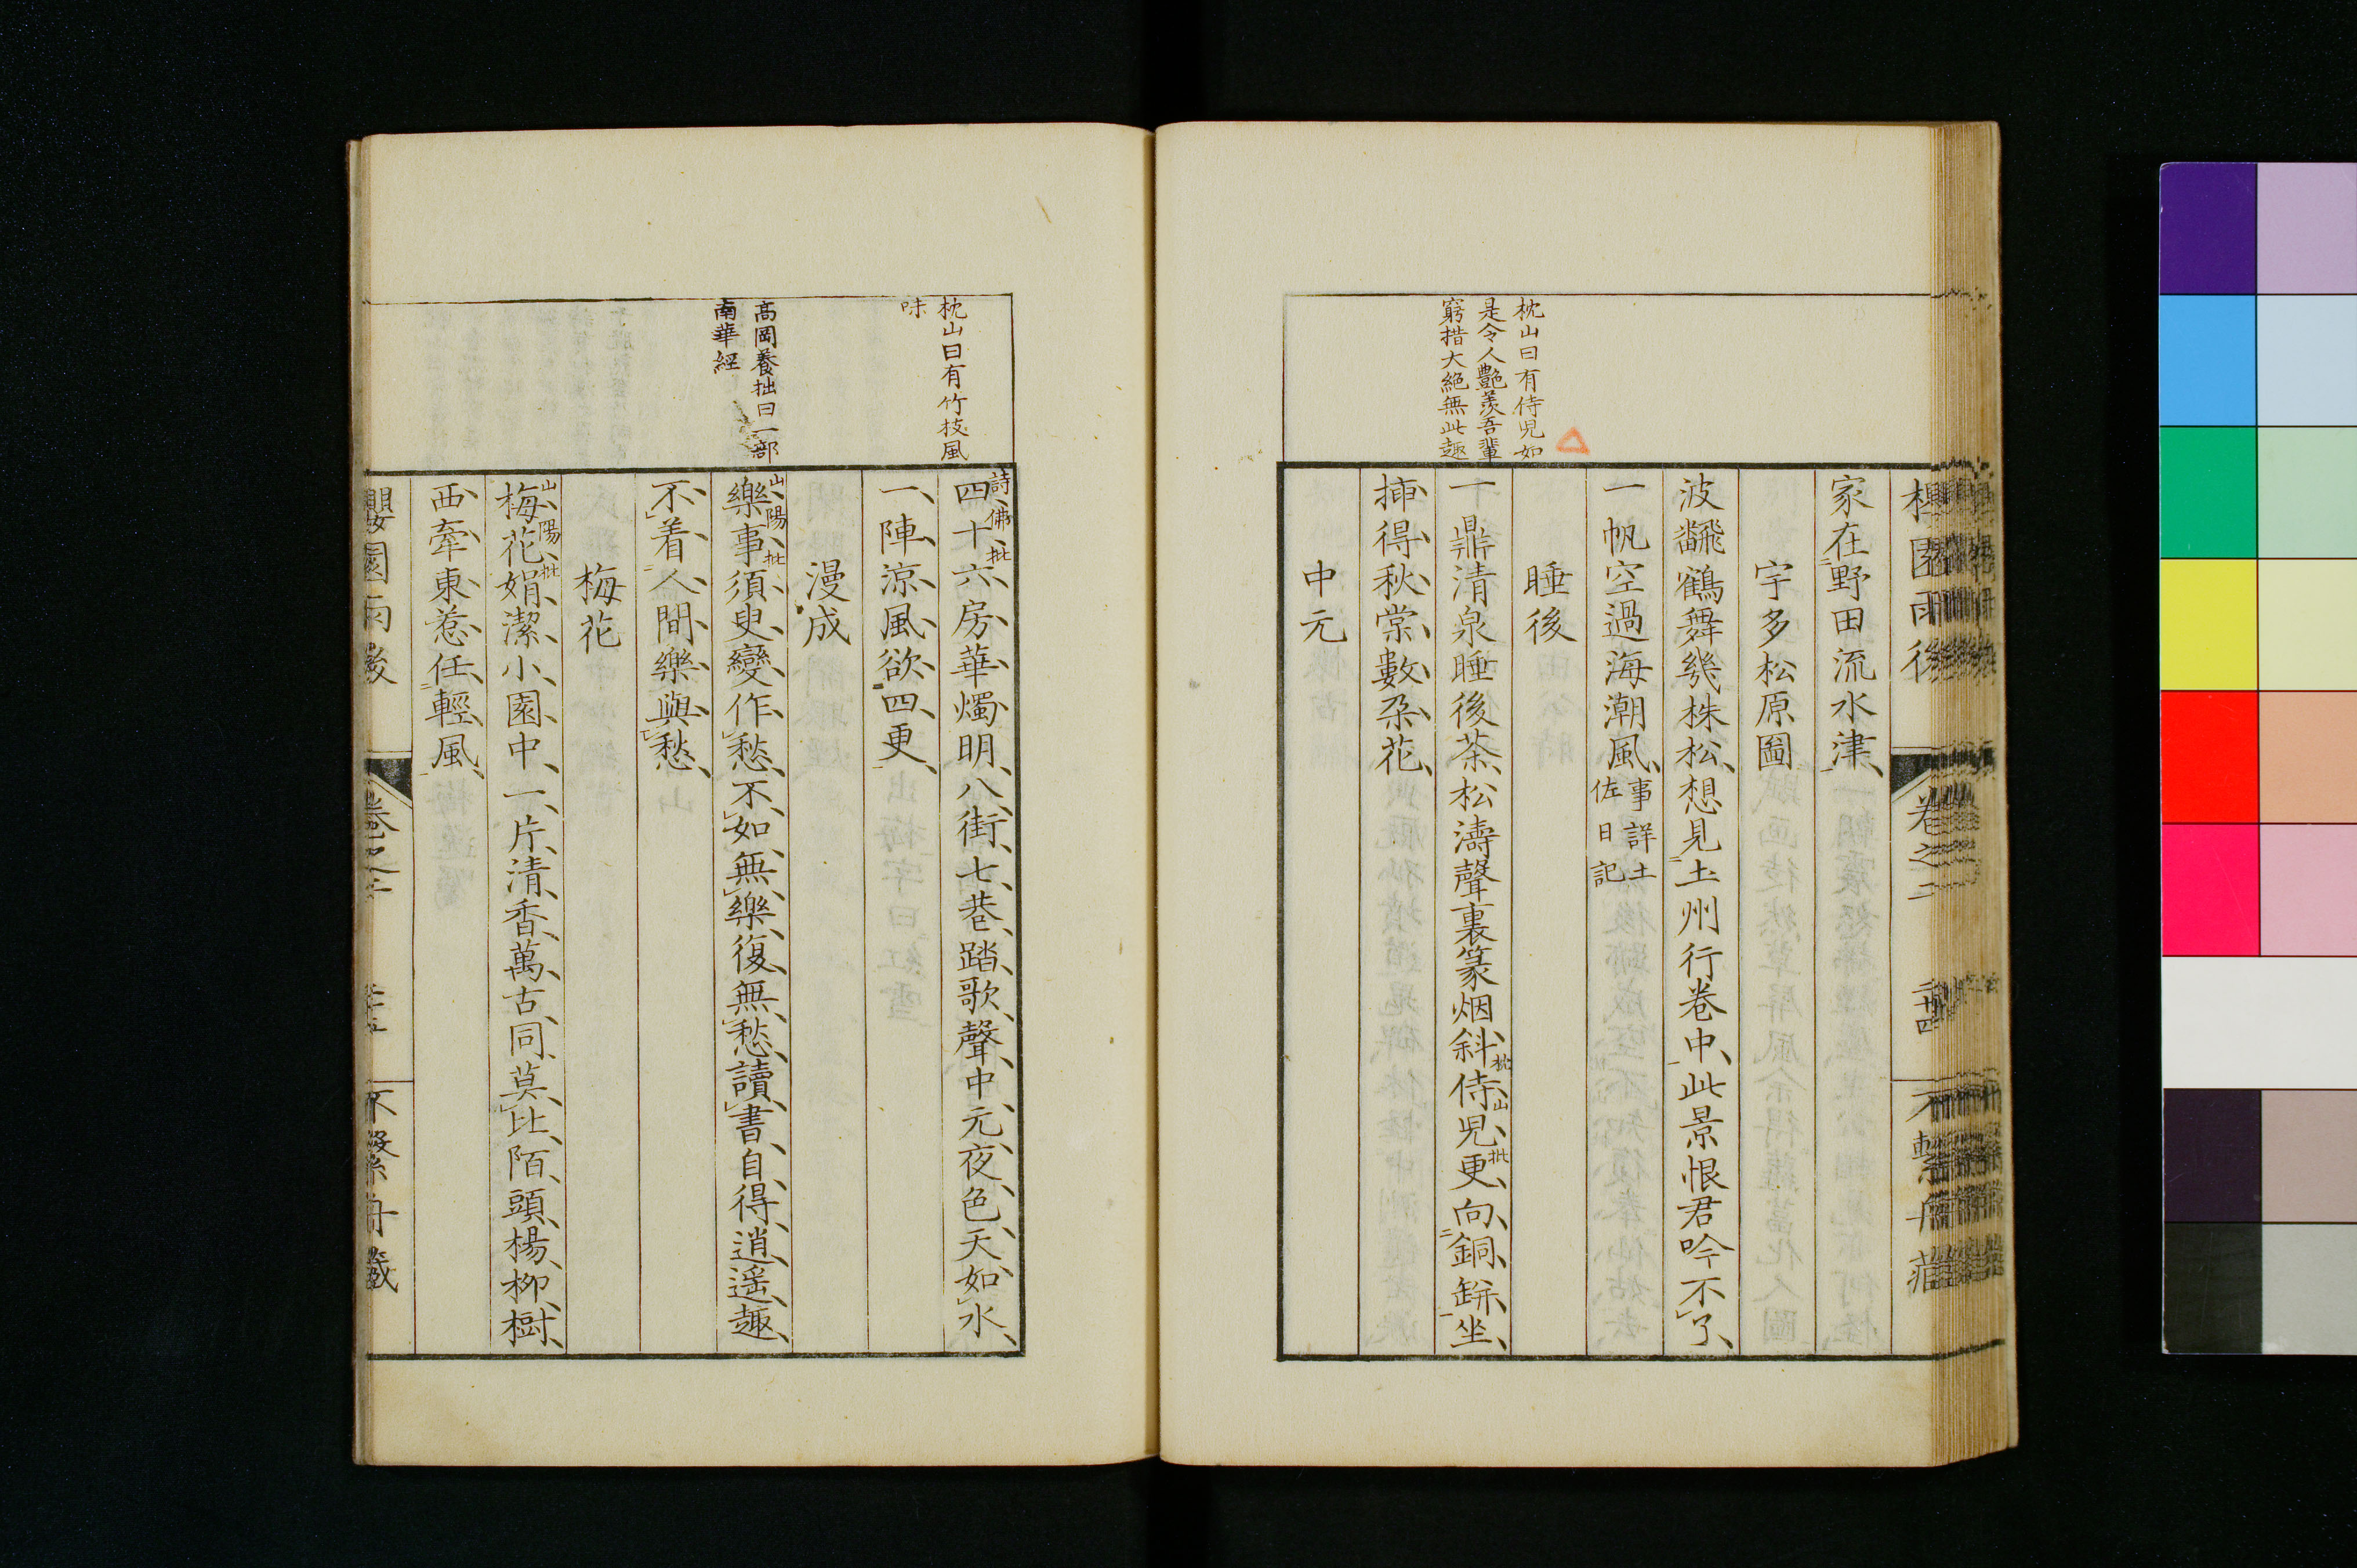 枕山曰有侍児如
是令人艶羨吾輩
窮措大絶無此趣
家在野田流水津
宇多松原圖
波飜鶴舞幾株松想見土州行巻中此景恨君吟不了
一帆空過海潮風事詳土佐日記
睡後
一鼎清泉睡後茶松濤聲裏篆烟斜侍児更向銅缾坐
枕山批
挿得秋棠數朶花
中元
枕山曰有竹枝風
味
髙岡養拙曰一部
南華經
詩佛批
四十六房華燭明八街七巷踏歌聲中元夜色天如水
一陣涼風欲四更
漫成
山陽批
樂事須臾變作愁不如無樂復無愁讀書自得逍遥趣
不着人間樂與愁
梅花
山陽批
梅花娟潔小園中一片清香萬古同莫比陌頭楊柳樹
西牽東惹任輕風